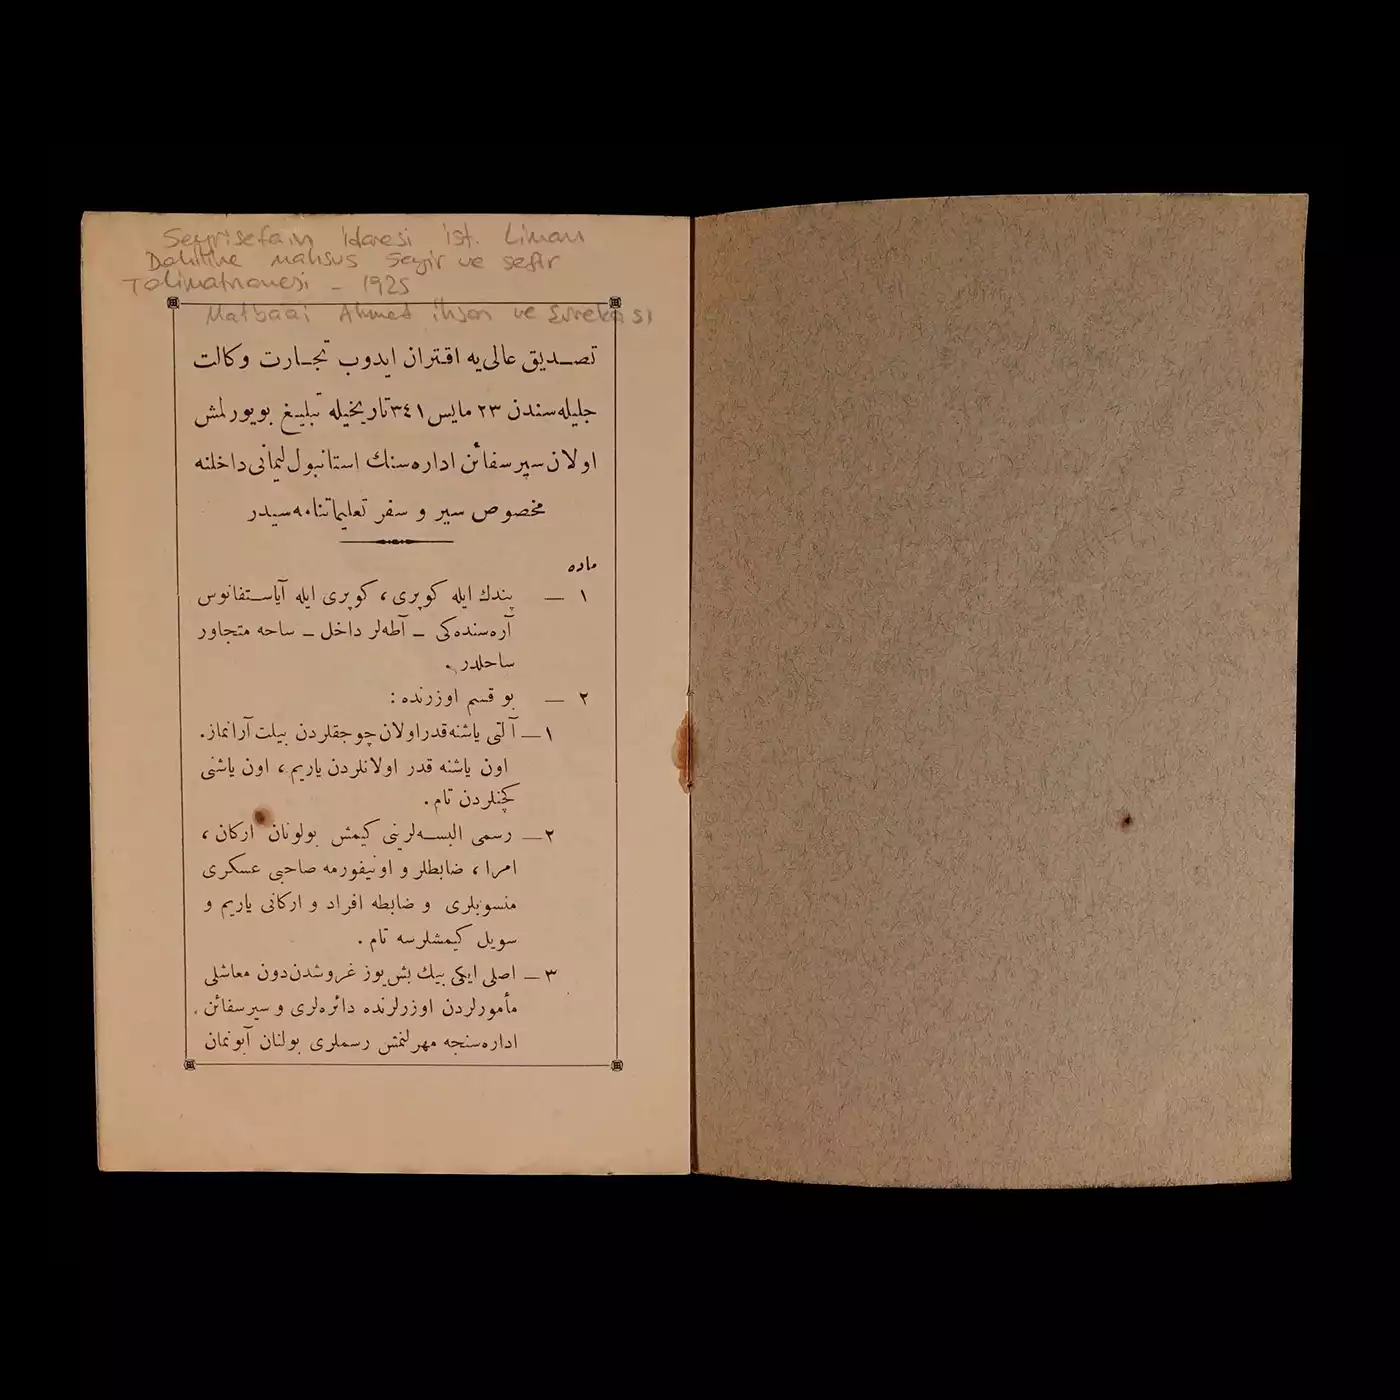 Seyrisefain idaresi ist. Liman
Dahiline mahsus seyir ve sefer
Talimatnamesi - 1925
Matbaai Ahmed ihsan ve Şürekası
تصدیق عالی‌یه اقتران ایدوب تجارت وكالت
جلیله‌سندن ٢٣ مایس ٣٤١ تاریخیله تبلیغ بویورلمش
اولان سیرسفائن اداره‌سنك استانبول لیمانی داخلنه
مخصوص سیر و سفر تعلیماتنامه‌سیدر
ماده
١ — پندك ایله كوپری ، كوپری ایله آیاستفانوس
آره‌سنده‌كی – آطه‌لر داخل – ساحه متجاور
ساحلدر .
٢ — بو قسم اوزرنده :
١— آلتی یاشنه قدر اولان چوجقلردن بیلت آرانماز .
اون یاشنه قدر اولانلردن یاریم ، اون یاشنی
كچنلردن تام .
٢— رسمی البسه‌لرینی كیمش بولونان اركان ،
امرا ، ضابطلر و اونیفورمه صاحبی عسكری
منسوبلری و ضابطه افراد و اركانی یاریم و
سویل كیمشلرسه تام .
٣— اصلی ایكی بیك بش یوز غروشدن دون معاشلی
مأمورلردن اوزرلرنده دائره‌لری و سیرسفائن
اداره‌سنجه مهرلنمش رسملری بولنان آبونمان